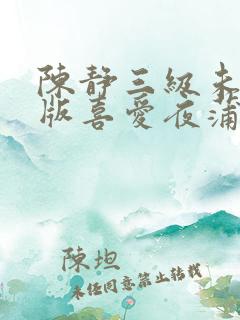 陳靜三級未
版喜愛夜蒲
陳坦
未经同意禁止转载